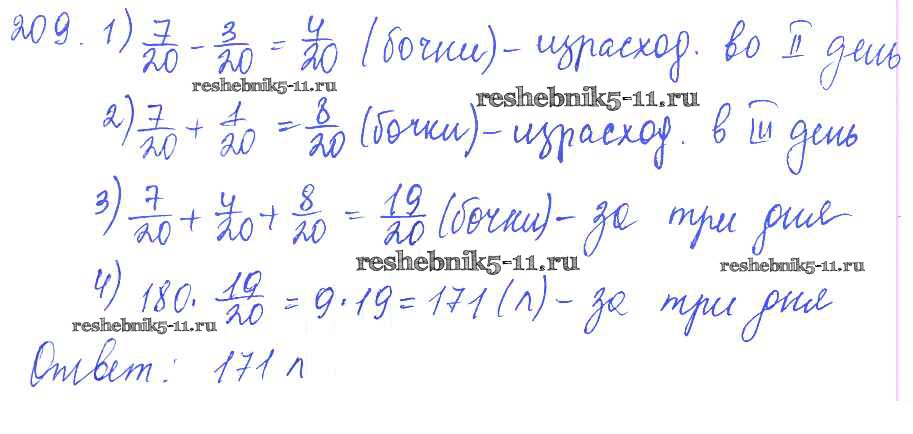 209. 1) 7/20 - 3/20 = 4/20 (бочки) - израсход. во II день
reshebnik5-11.ru
reshebnik5-11.ru
2) 7/20 + 1/20 = 8/20 (бочки) - израсход. в III день
3) 7/20 + 4/20 + 8/20 = 19/20 (бочки) - за три дня
reshebnik5-11.ru
reshebnik5-11.ru
4) 180 · 19/20 = 9 · 19 = 171 (л) - за три дня
reshebnik5-11.ru
Ответ: 171 л